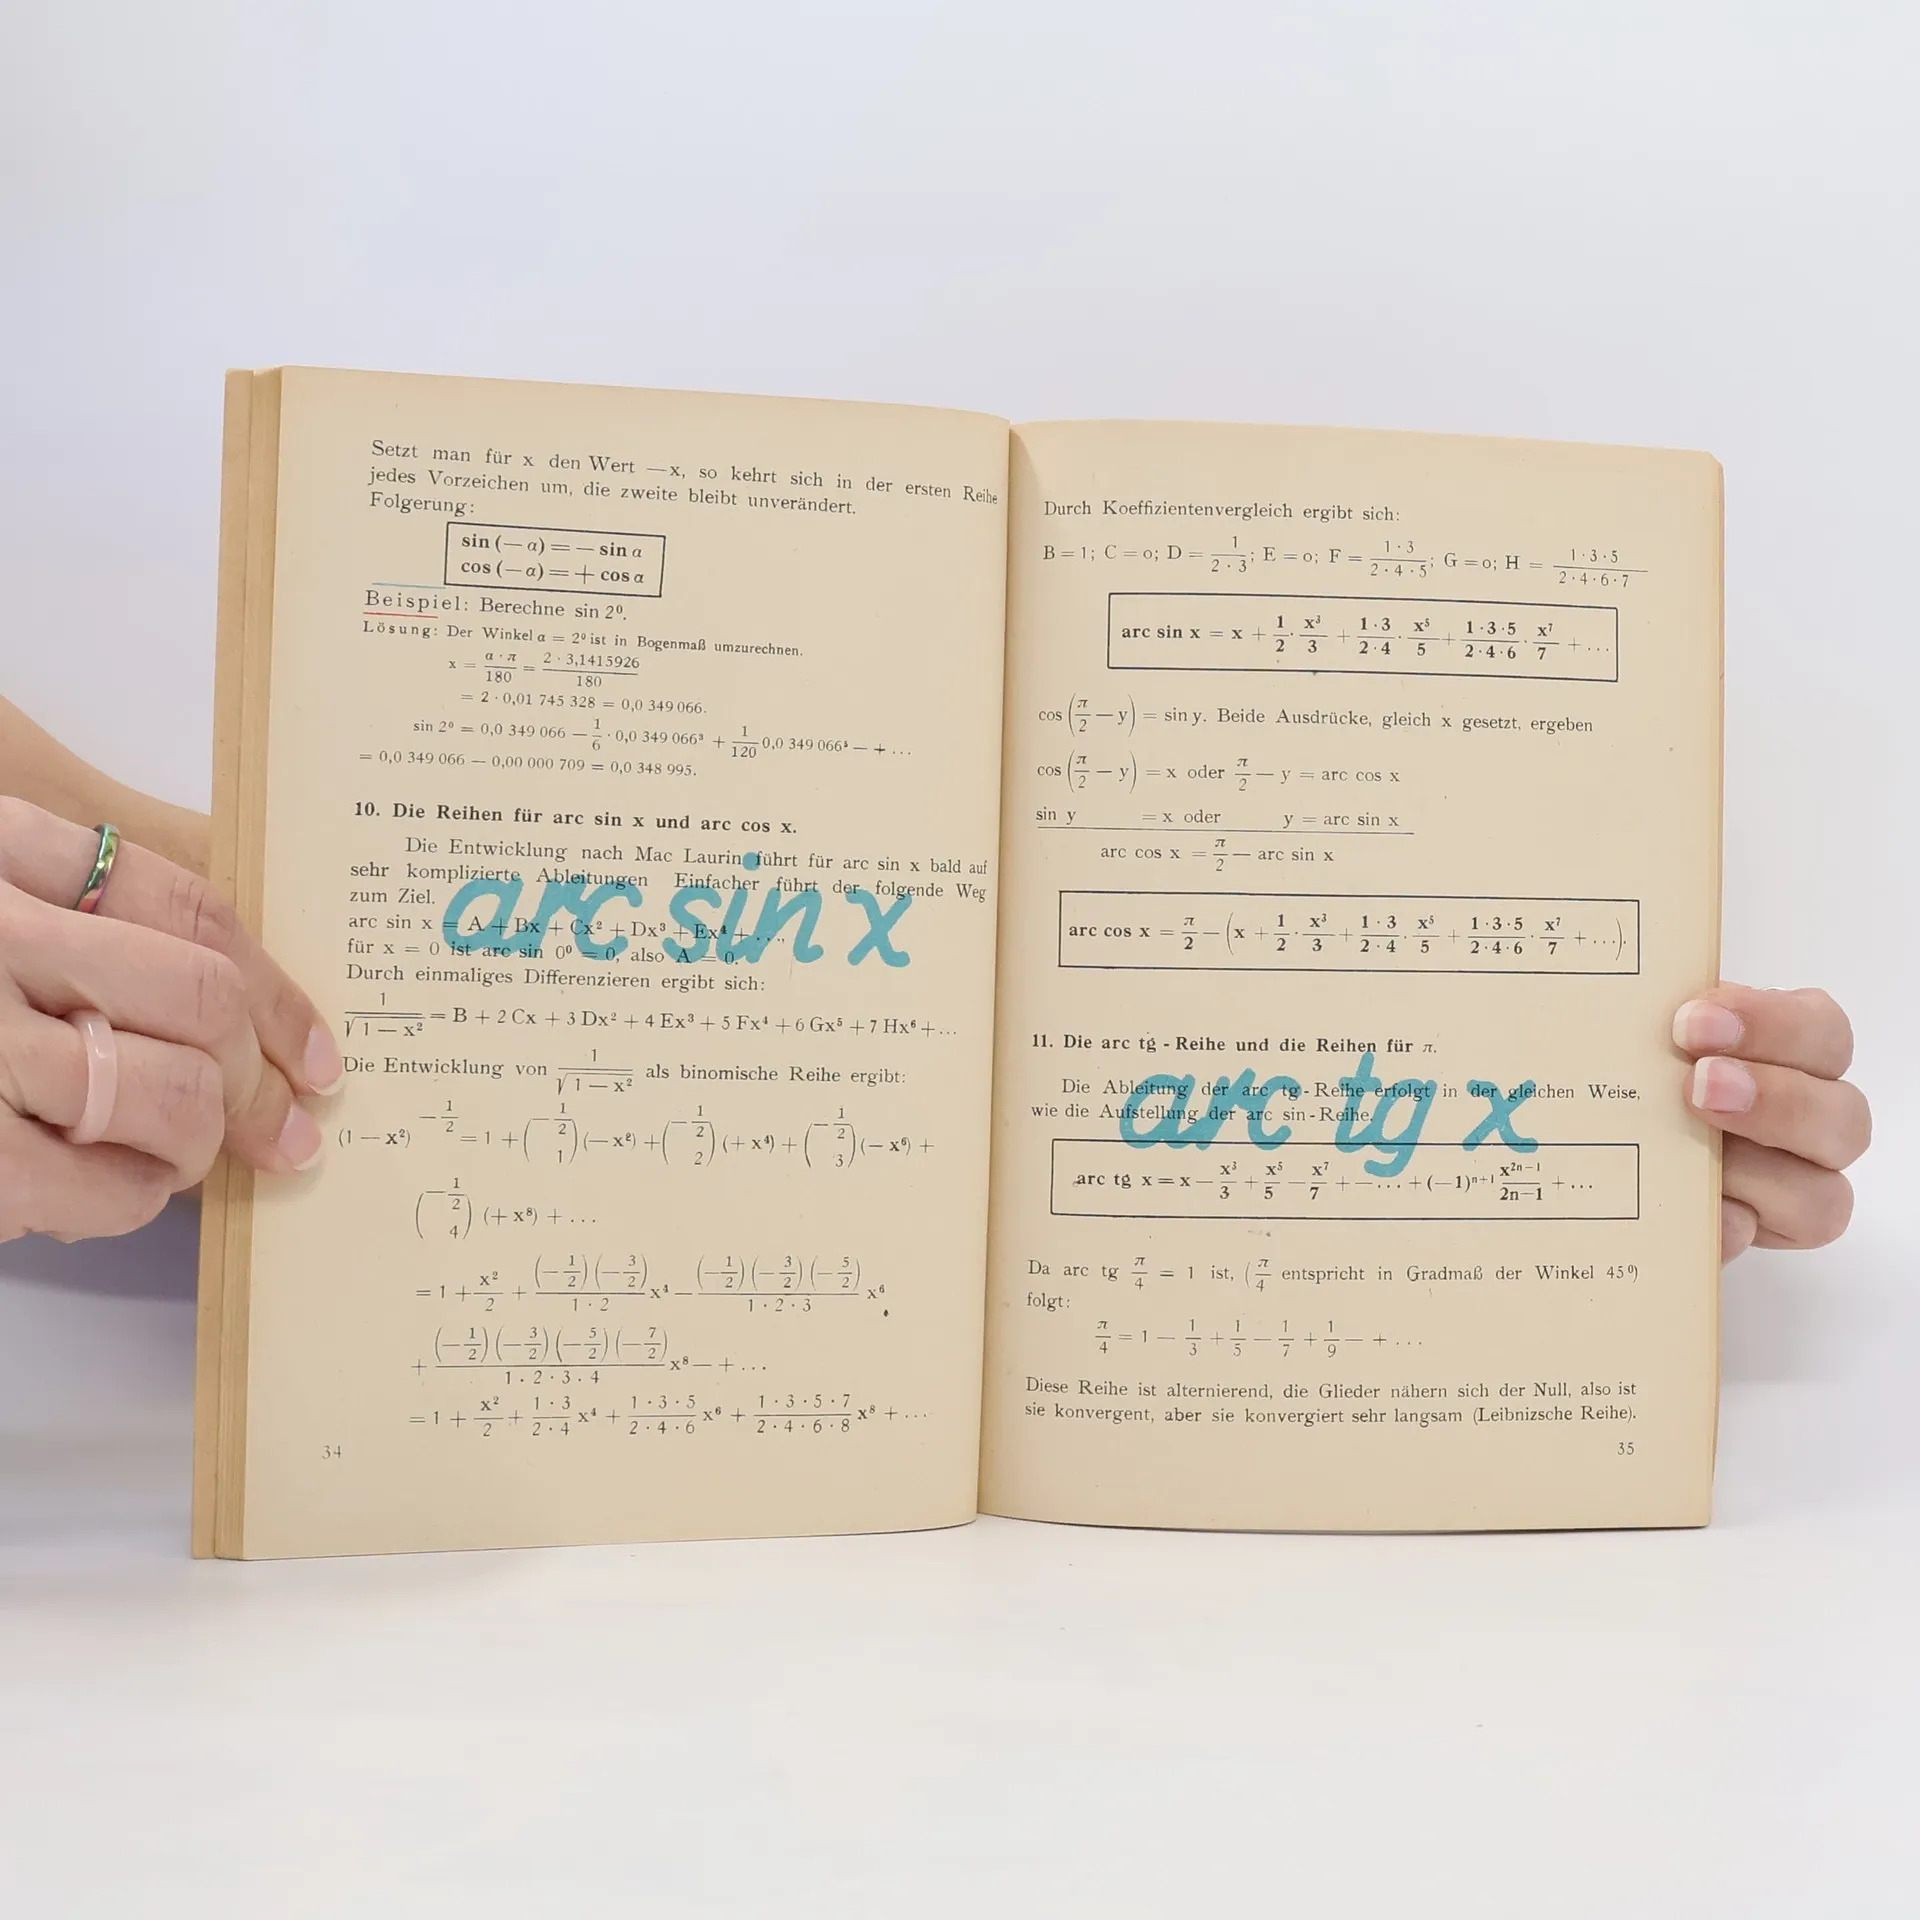 Setzt man für x den Wert —x, so kehrt sich in der ersten Reihe
jedes Vorzeichen um, die zweite bleibt unverändert.
Folgerung:
sin (— α) = — sin α
cos (— α) = + cos α
Beispiel: Berechne sin 2⁰.
Lösung: Der Winkel α = 2⁰ ist in Bogenmaß umzurechnen.
x = α · π / 180 = 2 · 3,1415926 / 180
= 2 · 0,01 745 328 = 0,0 349 066.
sin 2⁰ = 0,0 349 066 — 1/6 · 0,0 349 066³ + 1/120 0,0 349 066⁵ — + ...
= 0,0 349 066 — 0,00 000 709 = 0,0 348 995.
10. Die Reihen für arc sin x und arc cos x.
Die Entwicklung nach Mac Laurin führt für arc sin x bald auf
sehr komplizierte Ableitungen Einfacher führt der folgende Weg
zum Ziel.
arc sin x
arc sin x = A + Bx + Cx² + Dx³ + Ex⁴ + ...,
für x = 0 ist arc sin 0⁰ = 0, also A = 0.
Durch einmaliges Differenzieren ergibt sich:
1/√(1 — x²) = B + 2 Cx + 3 Dx² + 4 Ex³ + 5 Fx⁴ + 6 Gx⁵ + 7 Hx⁶ + ...
Die Entwicklung von 1/√(1 — x²) als binomische Reihe ergibt:
(1 — x²)^(—1/2) = 1 + (—1/2 1) (— x²) + (—1/2 2) (+ x⁴) + (—1/2 3) (— x⁶) +
(—1/2 4) (+ x⁸) + ...
= 1 + x²/2 + (—1/2) (—3/2) / 1 · 2 x⁴ — (—1/2) (—3/2) (—5/2) / 1 · 2 · 3 x⁶
+ (—1/2) (—3/2) (—5/2) (—7/2) / 1 . 2 · 3 . 4 x⁸ — + ...
= 1 + x²/2 + 1 · 3 / 2 · 4 x⁴ + 1 · 3 · 5 / 2 · 4 · 6 x⁶ + 1 · 3 · 5 · 7 / 2 · 4 · 6 · 8 x⁸ + ...
34
Durch Koeffizientenvergleich ergibt sich:
B = 1; C = o; D = 1 / 2 · 3; E = o; F = 1 · 3 / 2 · 4 · 5; G = o; H = 1 · 3 · 5 / 2 · 4 · 6 · 7
arc sin x = x + 1/2 · x³/3 + 1 · 3 / 2 · 4 · x⁵/5 + 1 · 3 · 5 / 2 · 4 · 6 · x⁷/7 + ...
cos (π/2 — y) = sin y. Beide Ausdrücke, gleich x gesetzt, ergeben
cos (π/2 — y) = x oder π/2 — y = arc cos x
sin y = x oder y = arc sin x
arc cos x = π/2 — arc sin x
arc cos x = π/2 — (x + 1/2 · x³/3 + 1 · 3 / 2 · 4 · x⁵/5 + 1 · 3 · 5 / 2 · 4 · 6 · x⁷/7 + ...).
11. Die arc tg - Reihe und die Reihen für π.
arc tg x
Die Ableitung der arc tg - Reihe erfolgt in der gleichen Weise,
wie die Aufstellung der arc sin - Reihe.
arc tg x = x — x³/3 + x⁵/5 — x⁷/7 + — ... + (—1)ⁿ⁺¹ x²ⁿ⁻¹/2n—1 + ...
Da arc tg π/4 = 1 ist, (π/4 entspricht in Gradmaß der Winkel 45⁰)
folgt:
π/4 = 1 — 1/3 + 1/5 — 1/7 + 1/9 — + ...
Diese Reihe ist alternierend, die Glieder nähern sich der Null, also ist
sie konvergent, aber sie konvergiert sehr langsam (Leibnizsche Reihe).
35